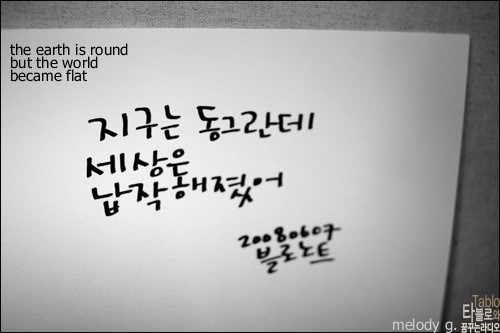 the earth is round
but the world
became flat
지구는 동그란데
세상은
납작해졌어
20080607
블로노트
melody g.
Tablo
타블로와
꿈꾸는라디오